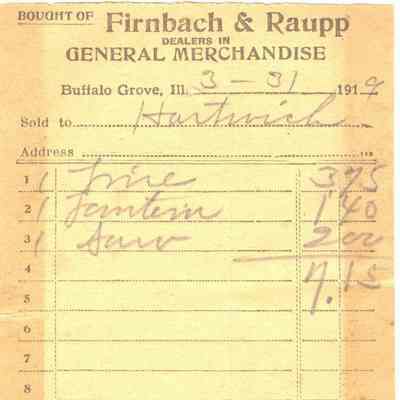 BOUGHT OF Firnbach & Raupp
DEALERS IN
GENERAL MERCHANDISE
Buffalo Grove, Ill. 3-31 1919
Sold to Hartwich
Address
1 1 375
2 1 Lantern 140
3 1 Saw 200
4 7.15
5
6
7
8